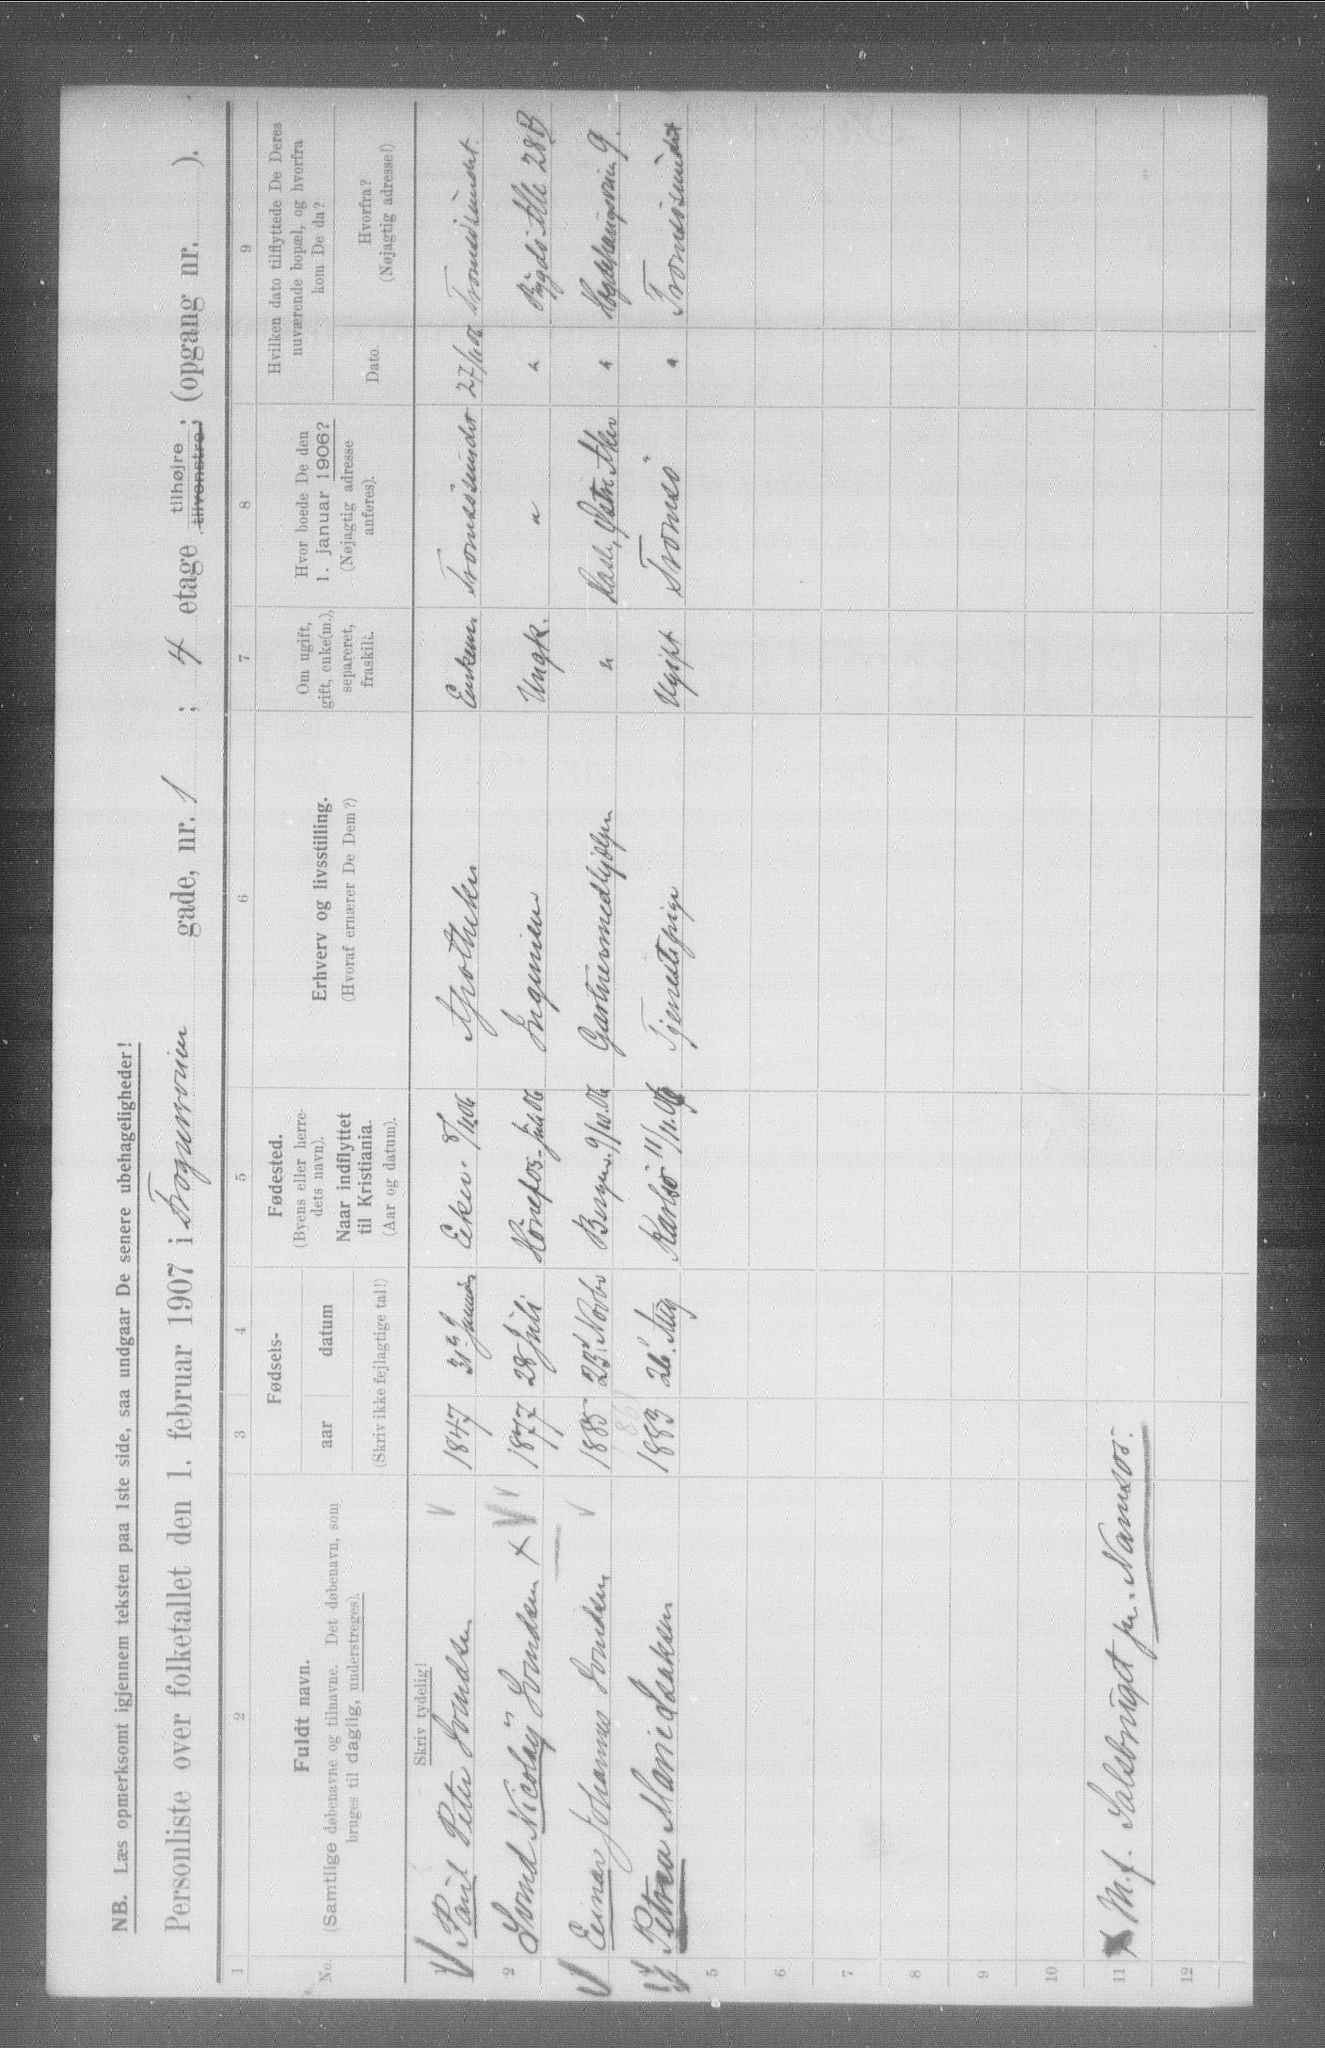 NB. Læs opmerksomt igjennem teksten paa 1ste side, saa undgaar De senere ubehageligheder!
Personliste over folketallet den 1. februar 1907 i Frognerveien gade, nr. 1 ; 4 etage tilhøjre tilvenstre ; (opgang nr. ).
1 2 3 4 5 6 7 8 9
No.
Fuldt navn.
(Samtlige døbenavne og tilnavne. Det døbenavn, som
bruges til daglig, understreges).
Fødsels-
aar datum
(Skriv ikke fejlagtige tal!)
Fødested.
(Byens eller herre-
dets navn).
Naar indflyttet
til Kristiania.
(Aar og datum).
Erhverv og livsstilling.
(Hvoraf ernærer De Dem?)
Om ugift,
gift, enke(m.),
separeret,
fraskilt.
Hvor boede De den
1. januar 1906?
(Nøjagtig adresse
anføres).
Hvilken dato tilflyttede De Deres
nuværende bopæl, og hvorfra
kom De da?
Dato. Hvorfra?
(Nøjagtig adresse!)
Skriv tydelig!
1 Paul Peter Svendsen 1847 31 Januar Eker. 8/11 06 Apotheker Enkem. Tromsösundet 27/11 06 Tromsösundet.
2 Svend Nicolaÿ Svendsen 1877 28 Juli Hönefos Ingeniør Ungk. " " Bygdö Alle 28 B
3 Einar Johannes Svendsen 1885 23' Novbr Bergen 9/10.06 Gartnermedhjælper " Østre Aker " 9.
4 Petrea Marie Isaksen 1883 26' Aug Karlsö 11/11.06 Tjenestepige Ugift Tromsö " Tromsösundet
5
6
7
8
9
10
11 M.f. Salsbruget pr. Namsos.
12